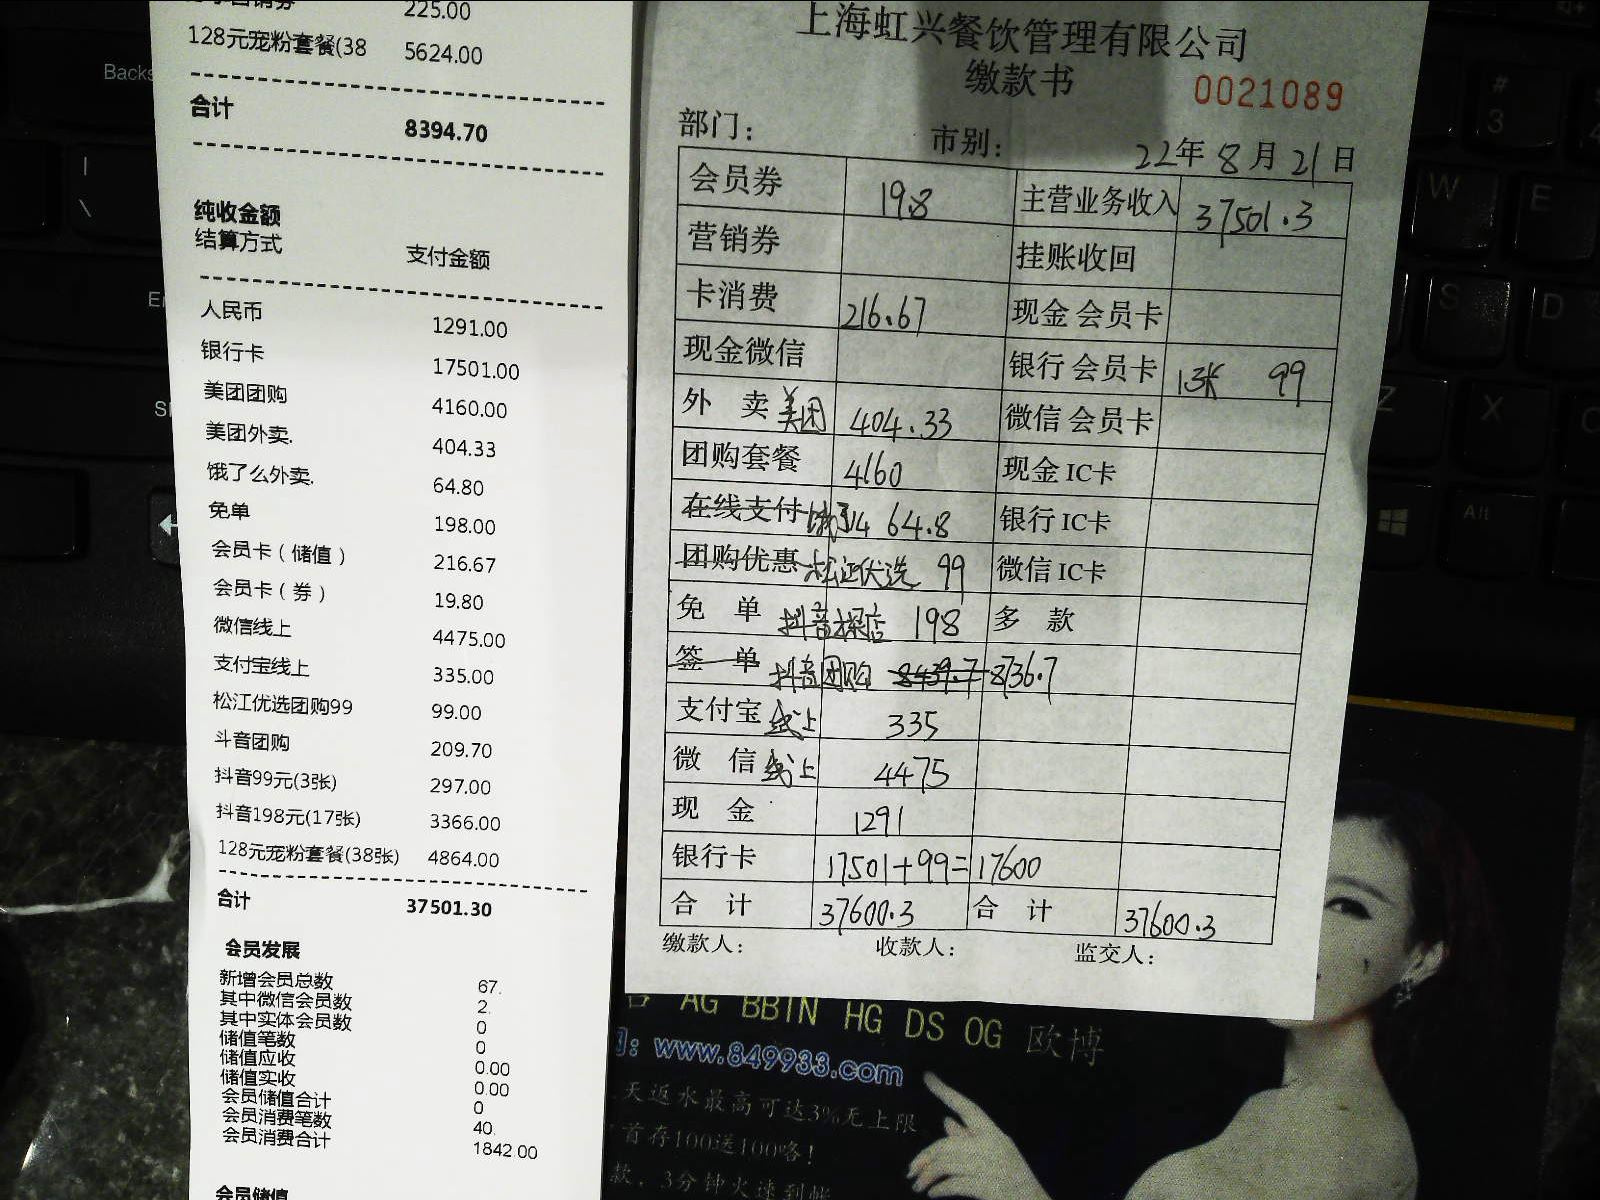 225.00
128元宠粉套餐(38 5624.00
合计 8394.70
纯收金额
结算方式 支付金额
人民币 1291.00
银行卡 17501.00
美团团购 4160.00
美团外卖. 404.33
饿了么外卖. 64.80
免单 198.00
会员卡（储值） 216.67
会员卡（券） 19.80
微信线上 4475.00
支付宝线上 335.00
松江优选团购99 99.00
斗音团购 209.70
抖音99元(3张) 297.00
抖音198元(17张) 3366.00
128元宠粉套餐(38张) 4864.00
合计 37501.30
会员发展
新增会员总数 67.
其中微信会员数 2.
其中实体会员数 0
储值笔数 0
储值应收 0.00
储值实收 0.00
会员储值合计 0
会员消费笔数 40.
会员消费合计 1842.00
会员储值
上海虹兴餐饮管理有限公司
缴款书 0021089
部门： 市别： 22年8月21日
会员券 19.8 主营业务收入 37501.3
营销券 挂账收回
卡消费 216.67 现金会员卡
现金微信 银行会员卡 1张 99
外卖美团 404.33 微信会员卡
团购套餐 4160 现金IC卡
在线支付 64.8 银行IC卡
团购优惠 松江优选 99 微信IC卡
免单 抖音探店 198 多款
签单 抖音团购 8439.7 8736.7
支付宝线上 335
微信线上 4475
现金 1291
银行卡 17501+99=17600
合计 37600.3 合计 37600.3
缴款人： 收款人： 监交人：
AG BBIN HG DS OG 欧博
www.849933.com
天返水最高可达3%无上限
首存100送100咯！
款，3分钟火速到帐
Backs
#
3
W
E
S
D
Z
X
C
Alt